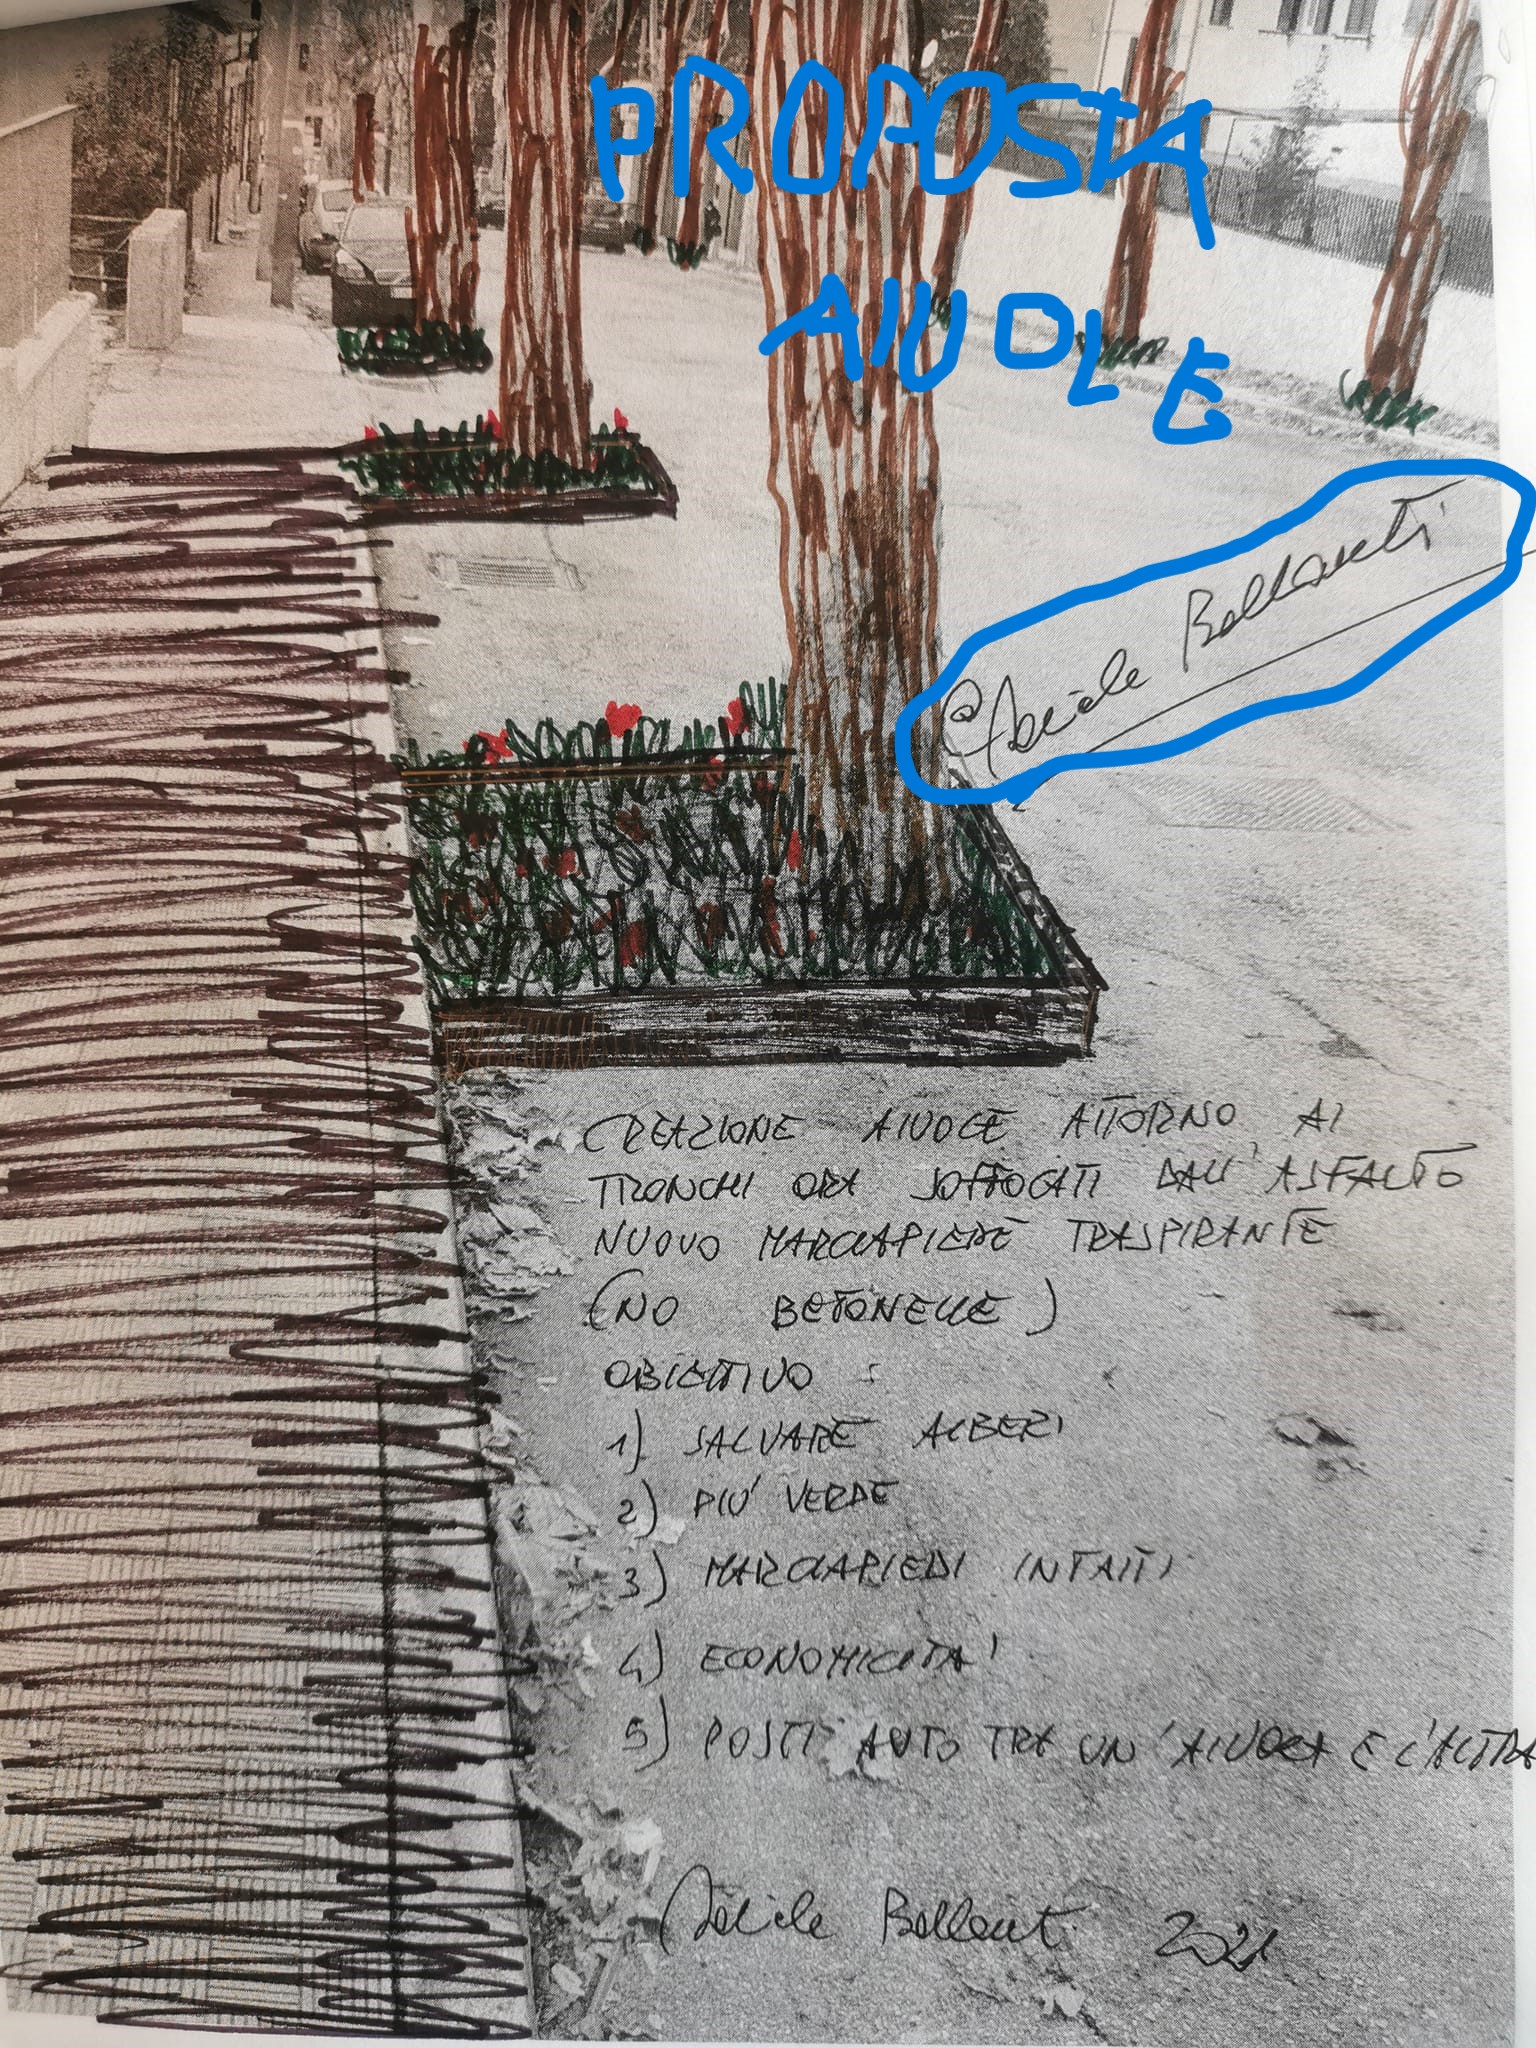 PROPOSTA
AIUOLE
CREAZIONE AIUOLE ATTORNO AI
TRONCHI ORA SOFFOCATI DALL'ASFALTO
NUOVO MARCIAPIEDE TRASPIRANTE
(NO BETONELLE)
OBIETTIVO :
1) SALVARE ALBERI
2) PIÙ VERDE
3) MARCIAPIEDI INTATTI
4) ECONOMICITA'
5) POSTI AUTO TRA UN'AIUOLA E L'ALTRA
2021